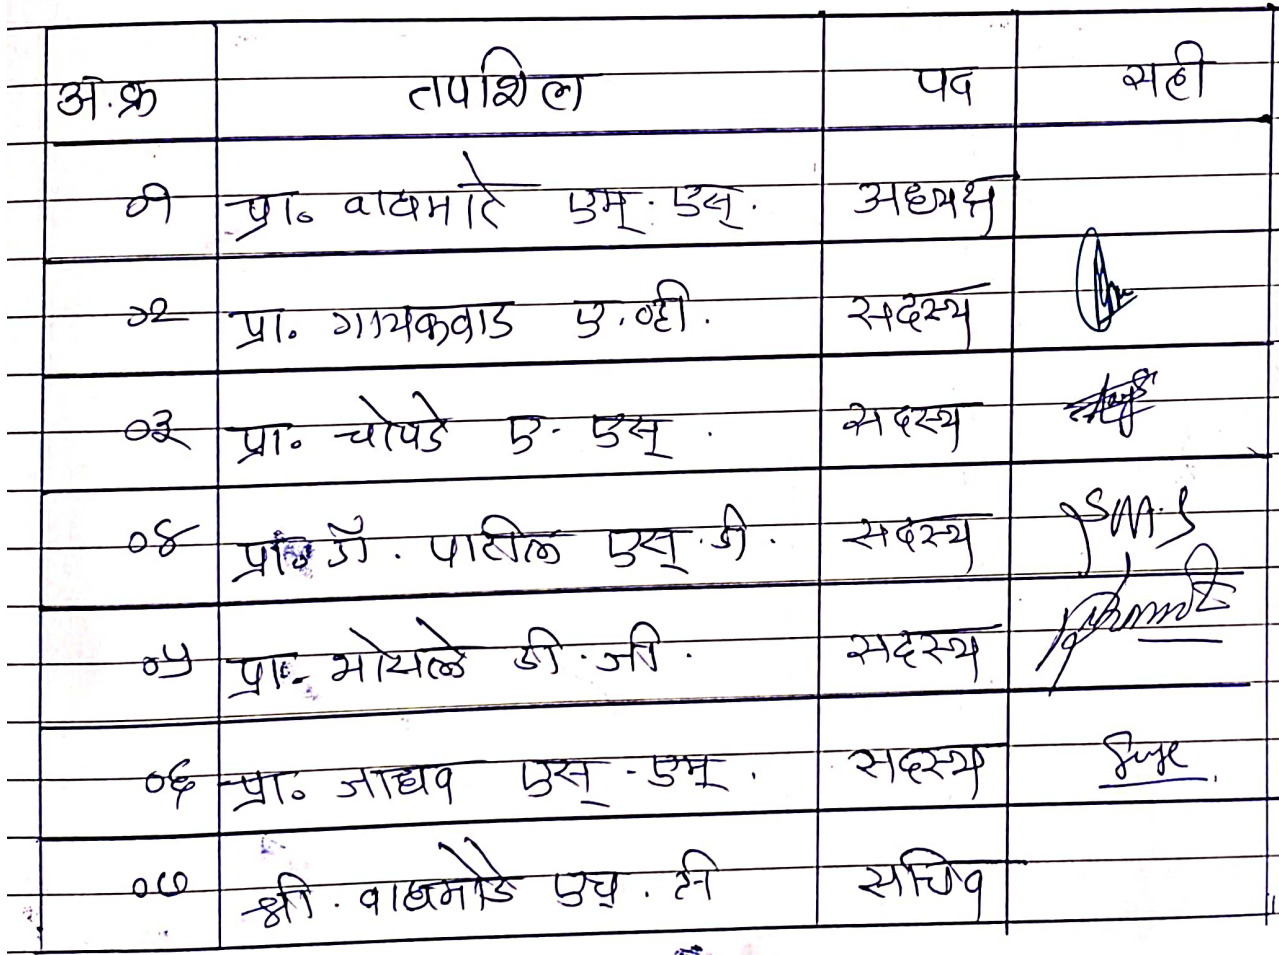 अ.क्र तपशिल पद सही
०१ प्रा. वाघमारे एम्. एस्. अध्यक्ष
०२ प्रा. गायकवाड ए.व्ही. सदस्य
०३ प्रा. चोपडे ए. एस्. सदस्य
०४ प्रा. डॉ. पाटील एस्. डी. सदस्य
०५ प्रा. भोसले डी. जी. सदस्य
०६ प्रा. जाधव एस्. एम्. सदस्य
०७ श्री. वाघमोडे एच्. टी सचिव